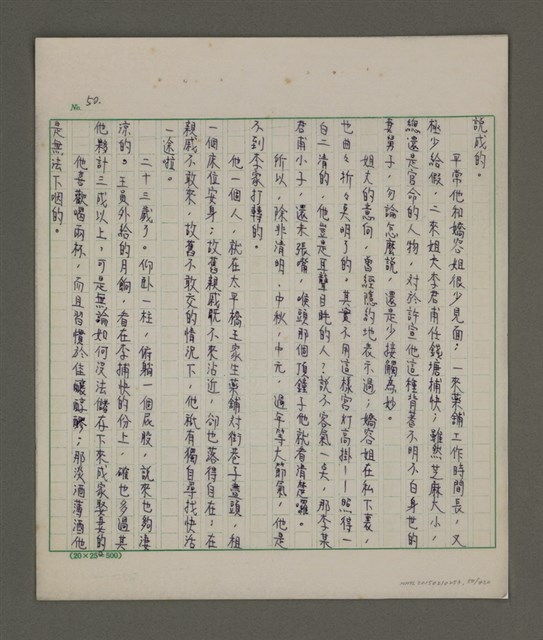 No. 50.
說成的。
平常他和嬌容姐很少見面；一來藥鋪工作時間長，又
極少給假，二來姐夫李君甫任錢塘捕快；雖然芝麻大小，
總還是官命的人物，對於許宣他這種背著不明不白身世的
妻男子，句論怎麼說，還是少接觸為妙。
姐夫的意向，曾經隱約地表示過；嬌容姐在私下裏，
也曲々折々吳明了的。其實不用這樣宮灯高掛——照得一
白二清的，他豈是耳聾目盹的人？說不客氣一点，那李某
君甫小子，還未張嘴，喉頭那個頂鐘子他就看清楚囉。
所以，除非清明．中秋．中元．過年等大節氣，他是
不到李家打轉的。
他一個人，就在太平橋王家生藥鋪對街巷子疊頭，租
一個床位安身；故舊親戚既不來沾近，卻也落得自在；在
親戚不敢來，故舊不敢交的情況下，他祇有獨自尋找快活
一途啦。
二十三歲了。仰臥一柱，俯躺一個屁股，說來也夠淒
涼的。王員外給的月餉，看在李捕快的份上，確也多過其
他夥計三成以上，可是無論如何沒法儲存下來成家娶妻的。
他喜歡喝兩杯，而且習慣於佳釀醇醪；那淡酒薄酒他
是無法下咽的。
(20×25=500)